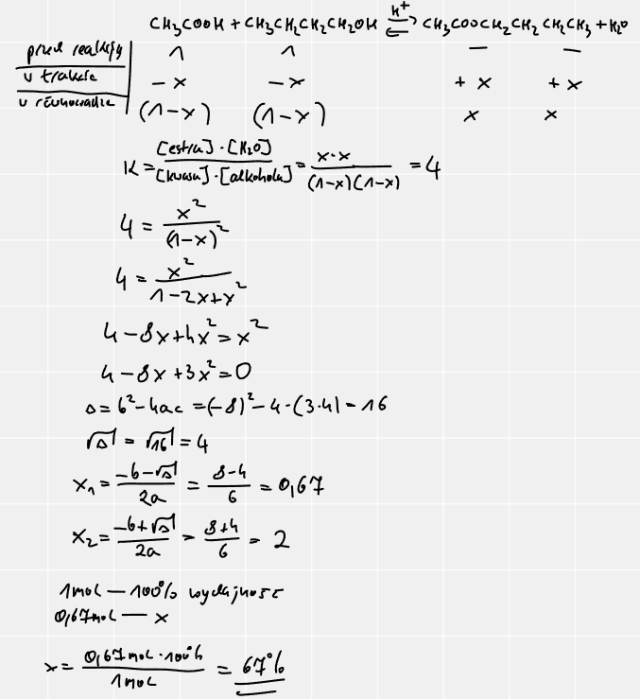 CH₃COOH + CH₃CH₂CH₂CH₂OH ⇌ CH₃COOCH₂CH₂CH₂CH₃ + H₂O
H⁺
przed reakcją 1 1 — —
w trakcie -x -x +x +x
w równowadze (1-x) (1-x) x x
K = [estru]·[H₂O] / [kwasu]·[alkoholu] = x·x / (1-x)(1-x) = 4
4 = x² / (1-x)²
4 = x² / 1-2x+x²
4-8x+4x² = x²
4-8x+3x² = 0
Δ = b²-4ac = (-8)²-4·(3·4) = 16
√Δ = √16 = 4
x₁ = -b-√Δ / 2a = 8-4 / 6 = 0,67
x₂ = -b+√Δ / 2a = 8+4 / 6 = 2
1mol — 100% wydajność
0,67mol — x
x = 0,67mol·100% / 1mol = 67%